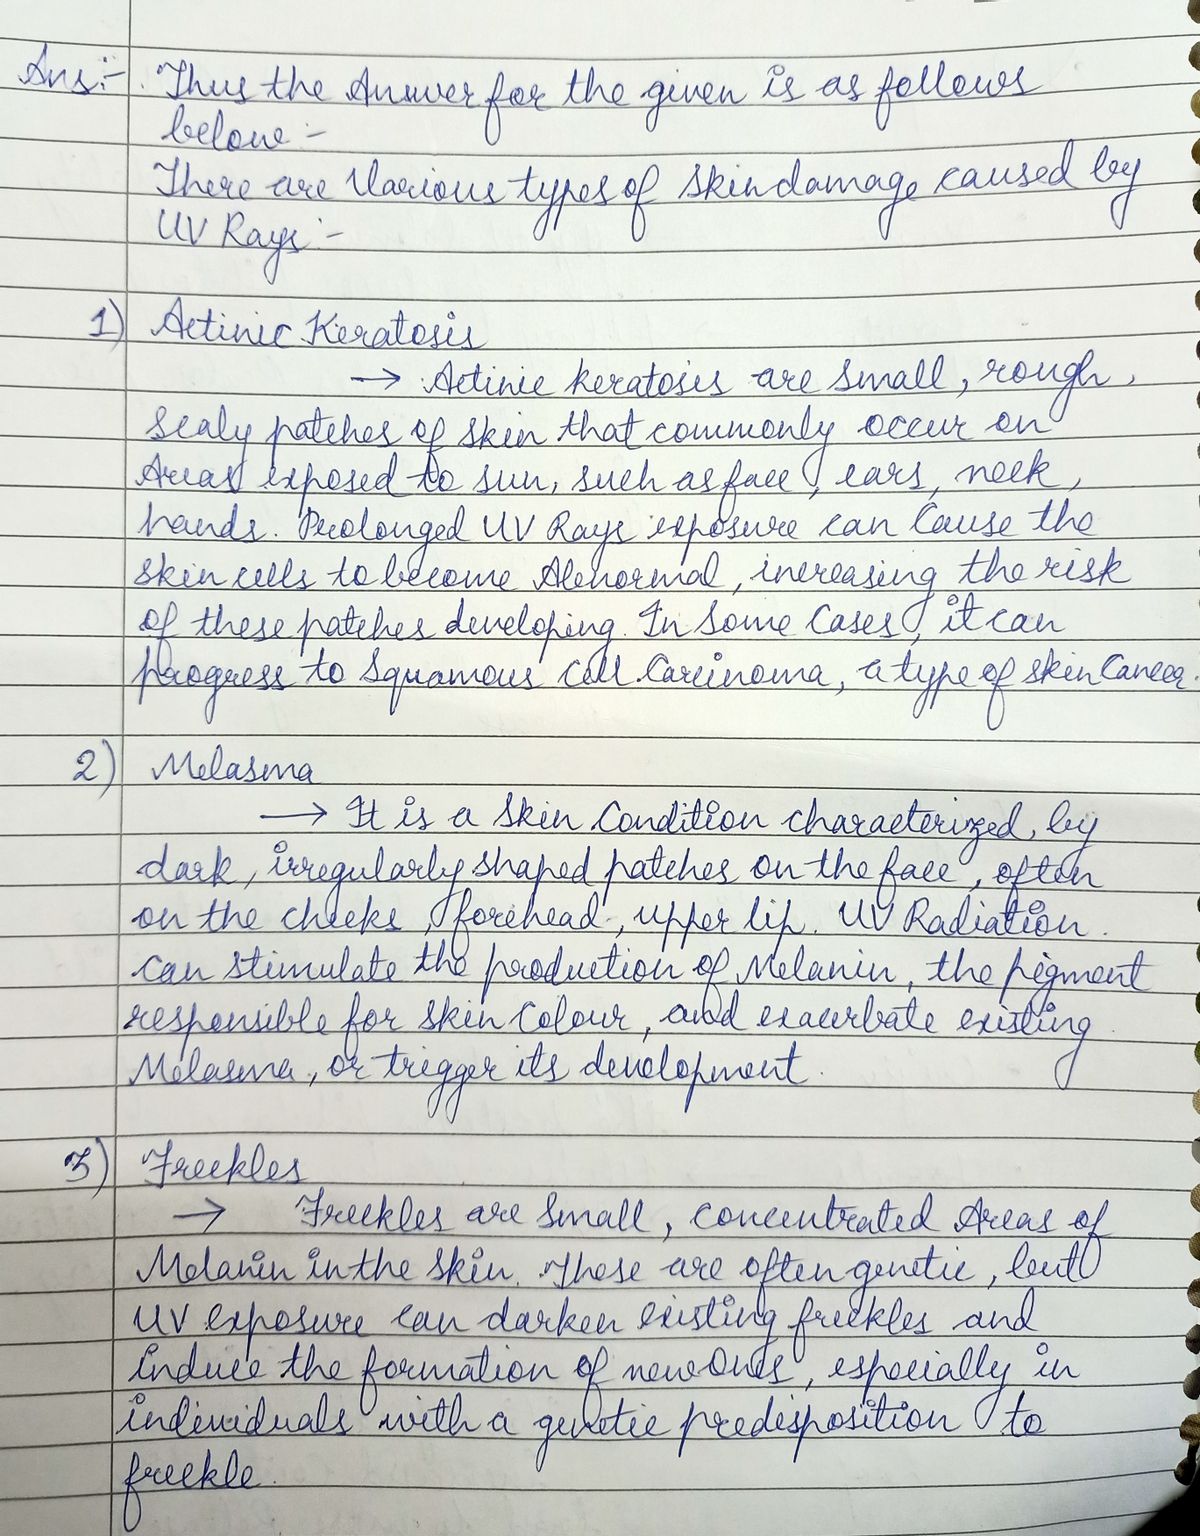 Ans:- Thus the Answer for the given is as follows
below :-
There are Various types of skin damage caused by
UV Rays :-
1) Actinic Keratosis
→ Actinic keratosis are small, rough,
scaly patches of skin that commonly occur on
Areas exposed to sun, such as face, ears, neck,
hands. Prolonged UV Rays exposure can Cause the
skin cells to become Abnormal, increasing the risk
of these patches developing. In Some Cases, it can
progress to Squamous Cell Carcinoma, a type of skin Cancer.
2) Melasma
→ It is a Skin Condition characterized, by
dark, irregularly shaped patches on the face, often
on the cheeks, forehead, upper lip. UV Radiation.
can stimulate the production of Melanin, the pigment
responsible for skin Colour, and exacerbate existing
Melasma, or trigger its development.
3) Freckles
→ Freckles are Small, concentrated Areas of
Melanin in the Skin. These are often genetic, but
UV exposure can darken existing freckles and
induce the formation of new Ones, especially in
individuals with a genetic predisposition to
freckle.